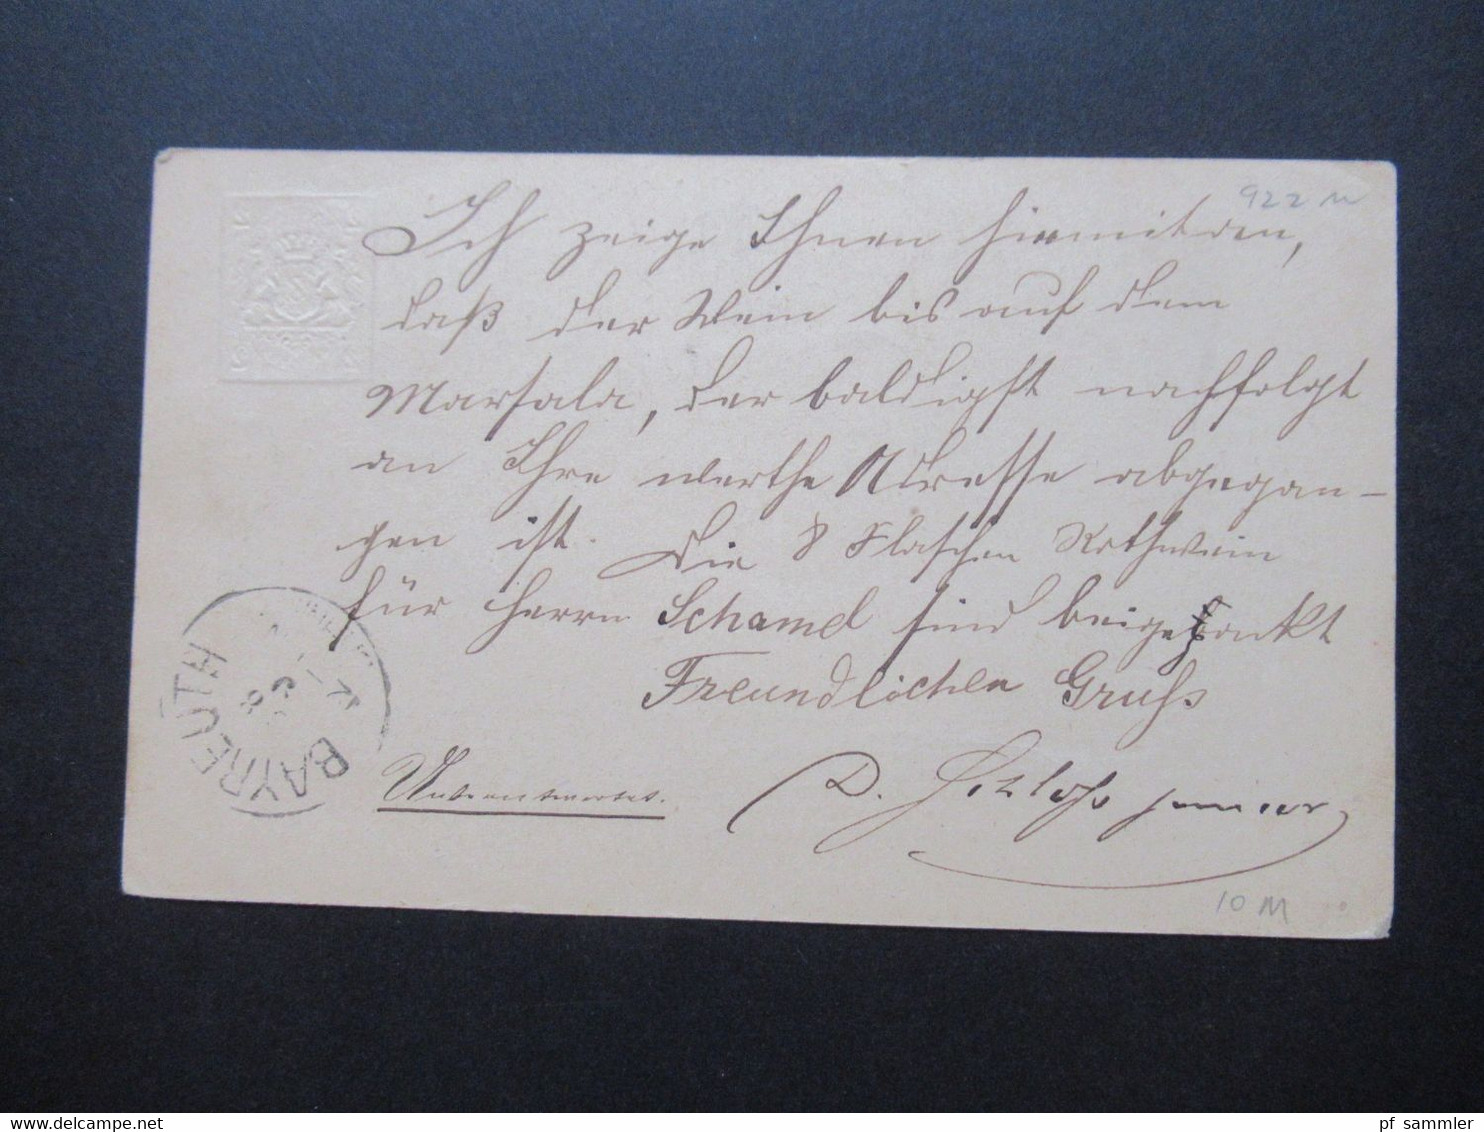 922
Ich zeige Ihnen hiermit an,
daß der Wein bis auf dem
Marsala, der baldigst nachfolgt
an Ihre werthe Adresse abgegan-
gen ist. Die 8 Flaschen Rothwein
für Herrn Schamel sind beigepackt
Freundlichen Gruss
D. Schloss junior
BAYREUTH
10 M
pf sammler
delcampe.net